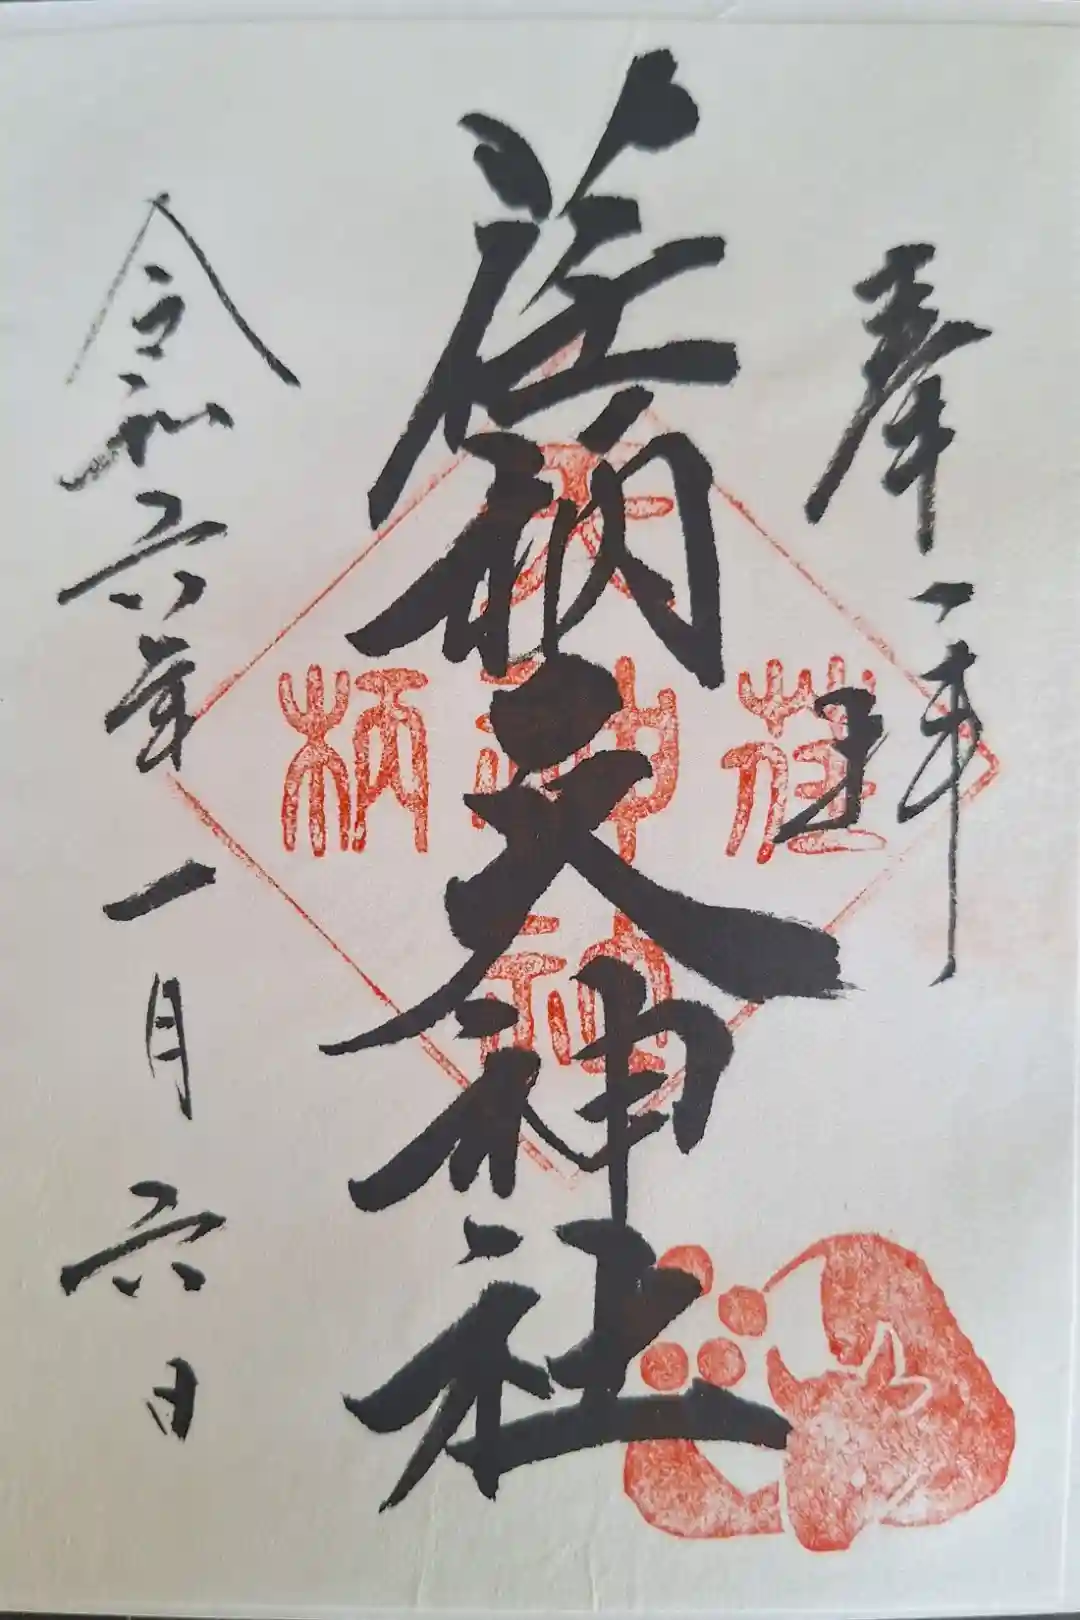 奉拝
荏柄天神社
令和六年一月六日
荏柄天神社